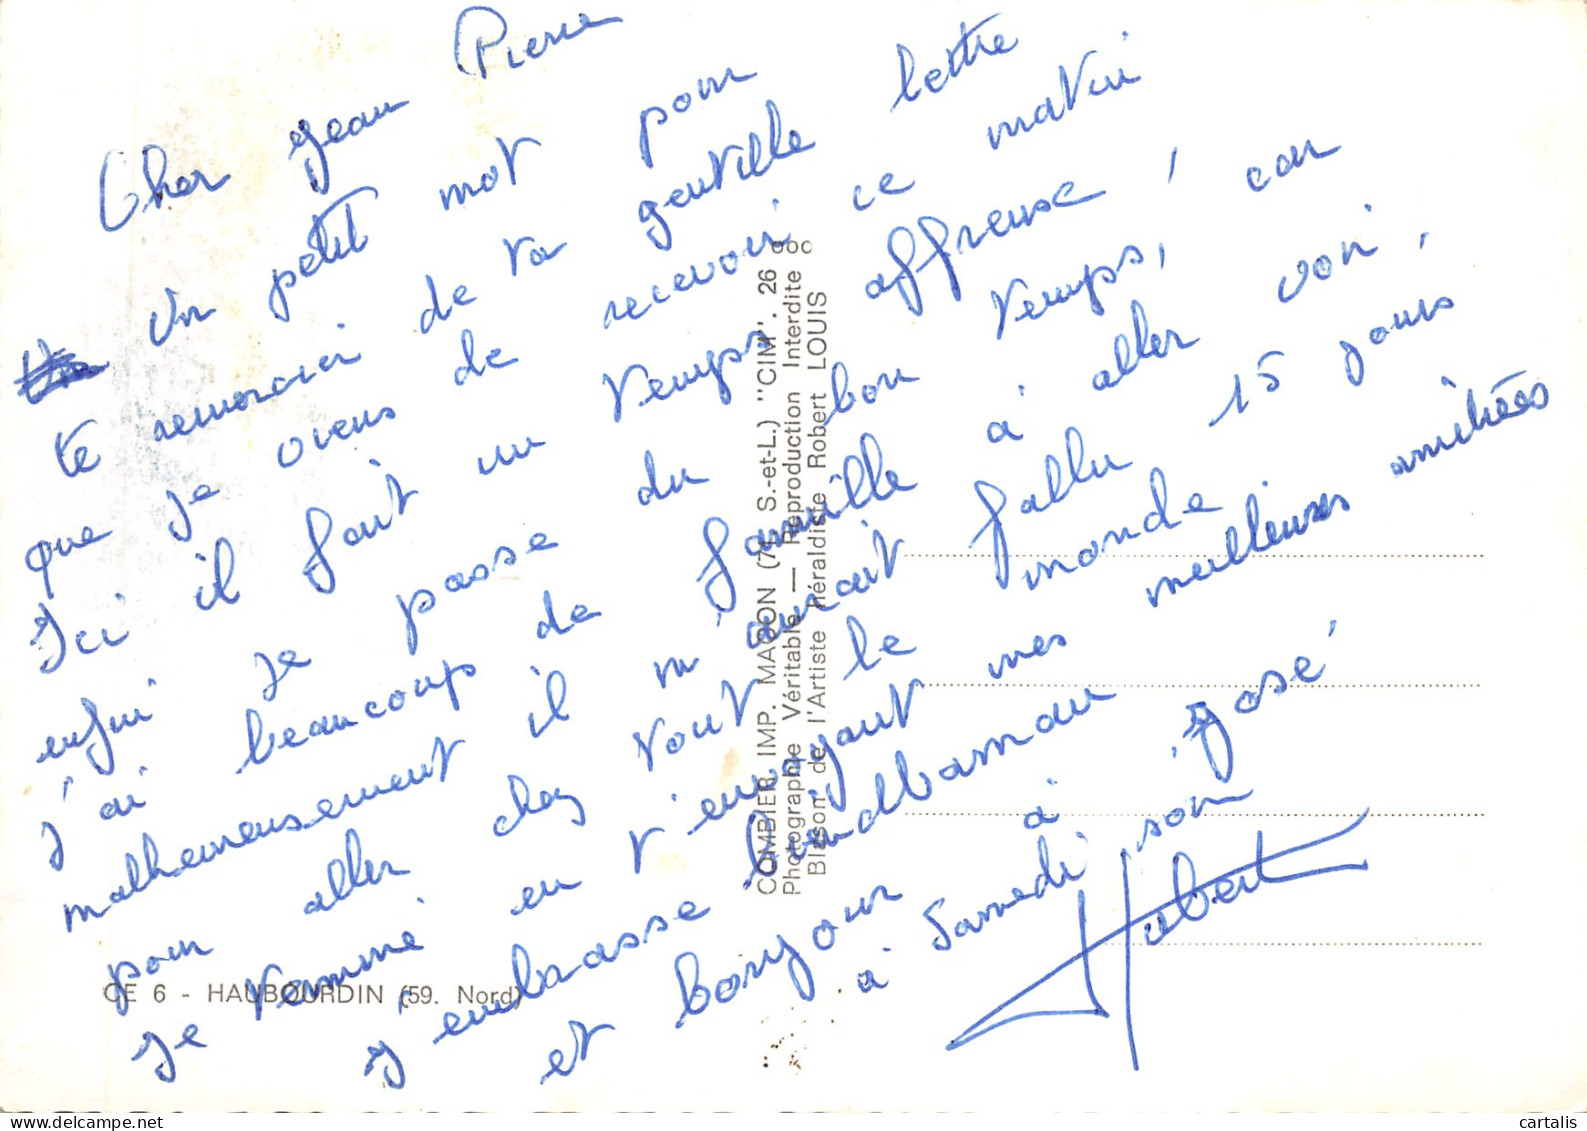 Cher Jean Pierre
Un petit mot pour
te remercier de ta gentille lettre
que je viens de recevoir ce matin
Ici il fait un temps affreuse, car
enfin je passe du bon temps,
j'ai beaucoup de famille à aller voir,
malheureusement il m'aurait fallu 15 jours
pour aller chez tout le monde
je termine en t'envoyant mes meilleuses amitiées
J'embrasse
et bonjour à José
à Samedi soir
Hubert
COMBIER IMP. MACON (71 S.-et-L.) "CIM". 26
Photographie Véritable — Reproduction Interdite
Blason de l'Artiste héraldiste Robert LOUIS
CE 6 - HAUBOURDIN (59. Nord)
cartalis